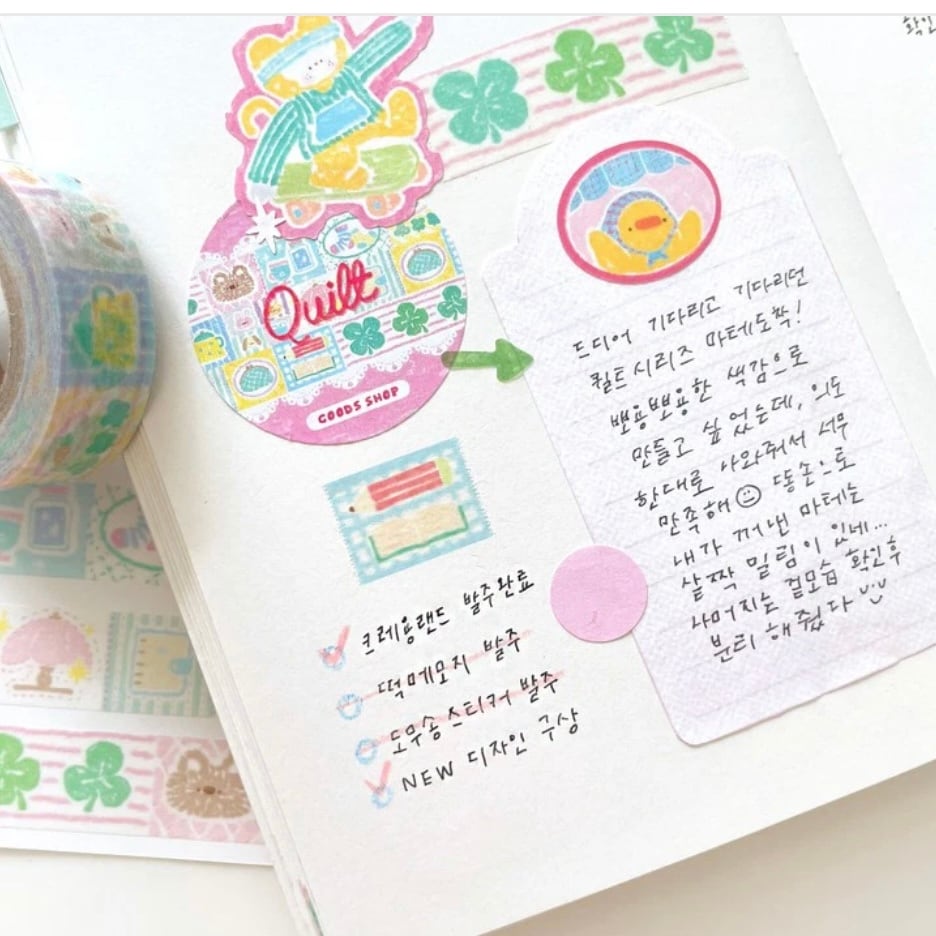 확인
Quilt
GOODS SHOP
드디어 기다리고 기다리던
퀼트 시리즈 마테도착!
뽀용뽀용한 색감으로
만들고 싶었는데, 의도
한대로 나와줘서 너무
만족해 똥손으로
내가 꺼낸 마테는
살짝 밀림이 있네...
나머지는 겉모습 확인후
분리 해줬다
크레용랜드 발주완료
떡메모지 발주
도무송 스티커 발주
NEW 디자인 구상